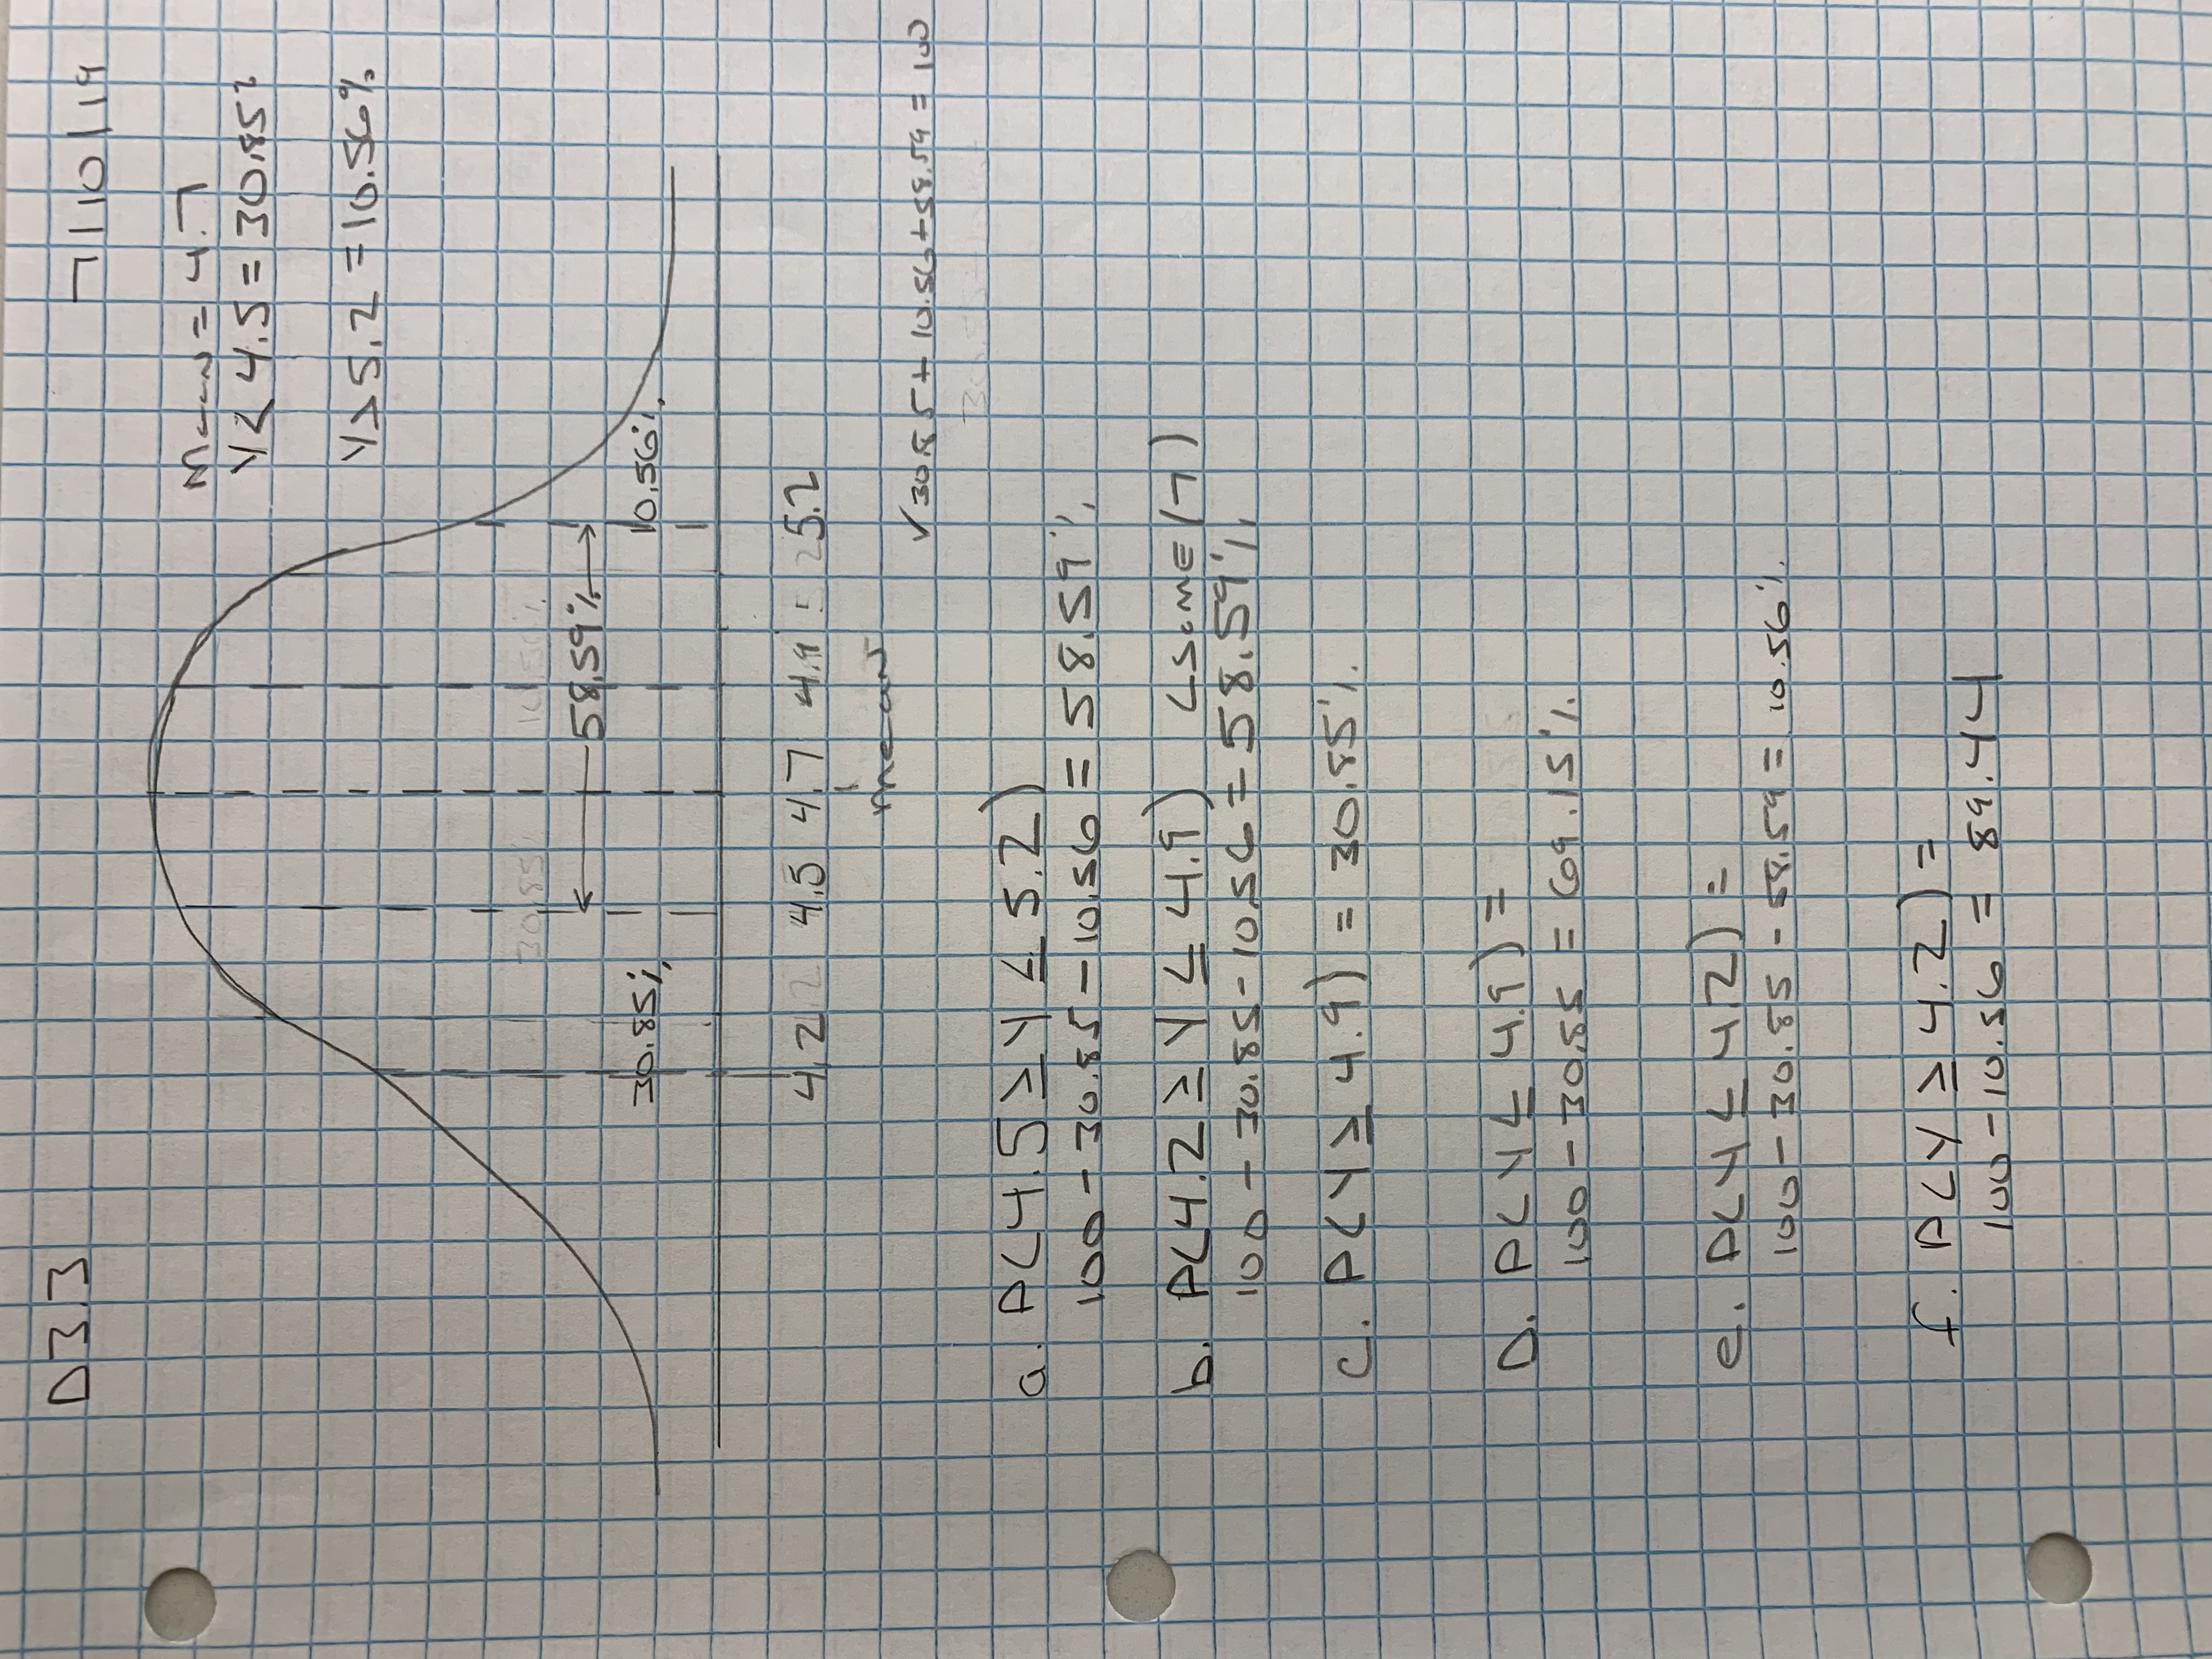 D3.3
7/10/19
Mean = 4.7
Y < 4.5 = 30.85%
Y > 5.2 = 10.56%
← 58.59% →
30.85%
10.56%
4.2 4.5 4.7 4.9 5.2
mean
√ 30.85 + 10.56 + 58.59 = 100
a. P(4.5 ≥ Y ≤ 5.2)
100 - 30.85 - 10.56 = 58.59%
b. P(4.2 ≥ Y ≤ 4.9)
100 - 30.85 - 10.56 = 58.59%
c. P(Y ≥ 4.9) = 30.85%
D. P(Y ≤ 4.9) =
100 - 30.85 = 69.15%
e. P(Y ≤ 4.2) =
100 - 30.85 - 58.59 = 10.56%
f. P(Y ≥ 4.2) =
100 - 10.56 = 89.44